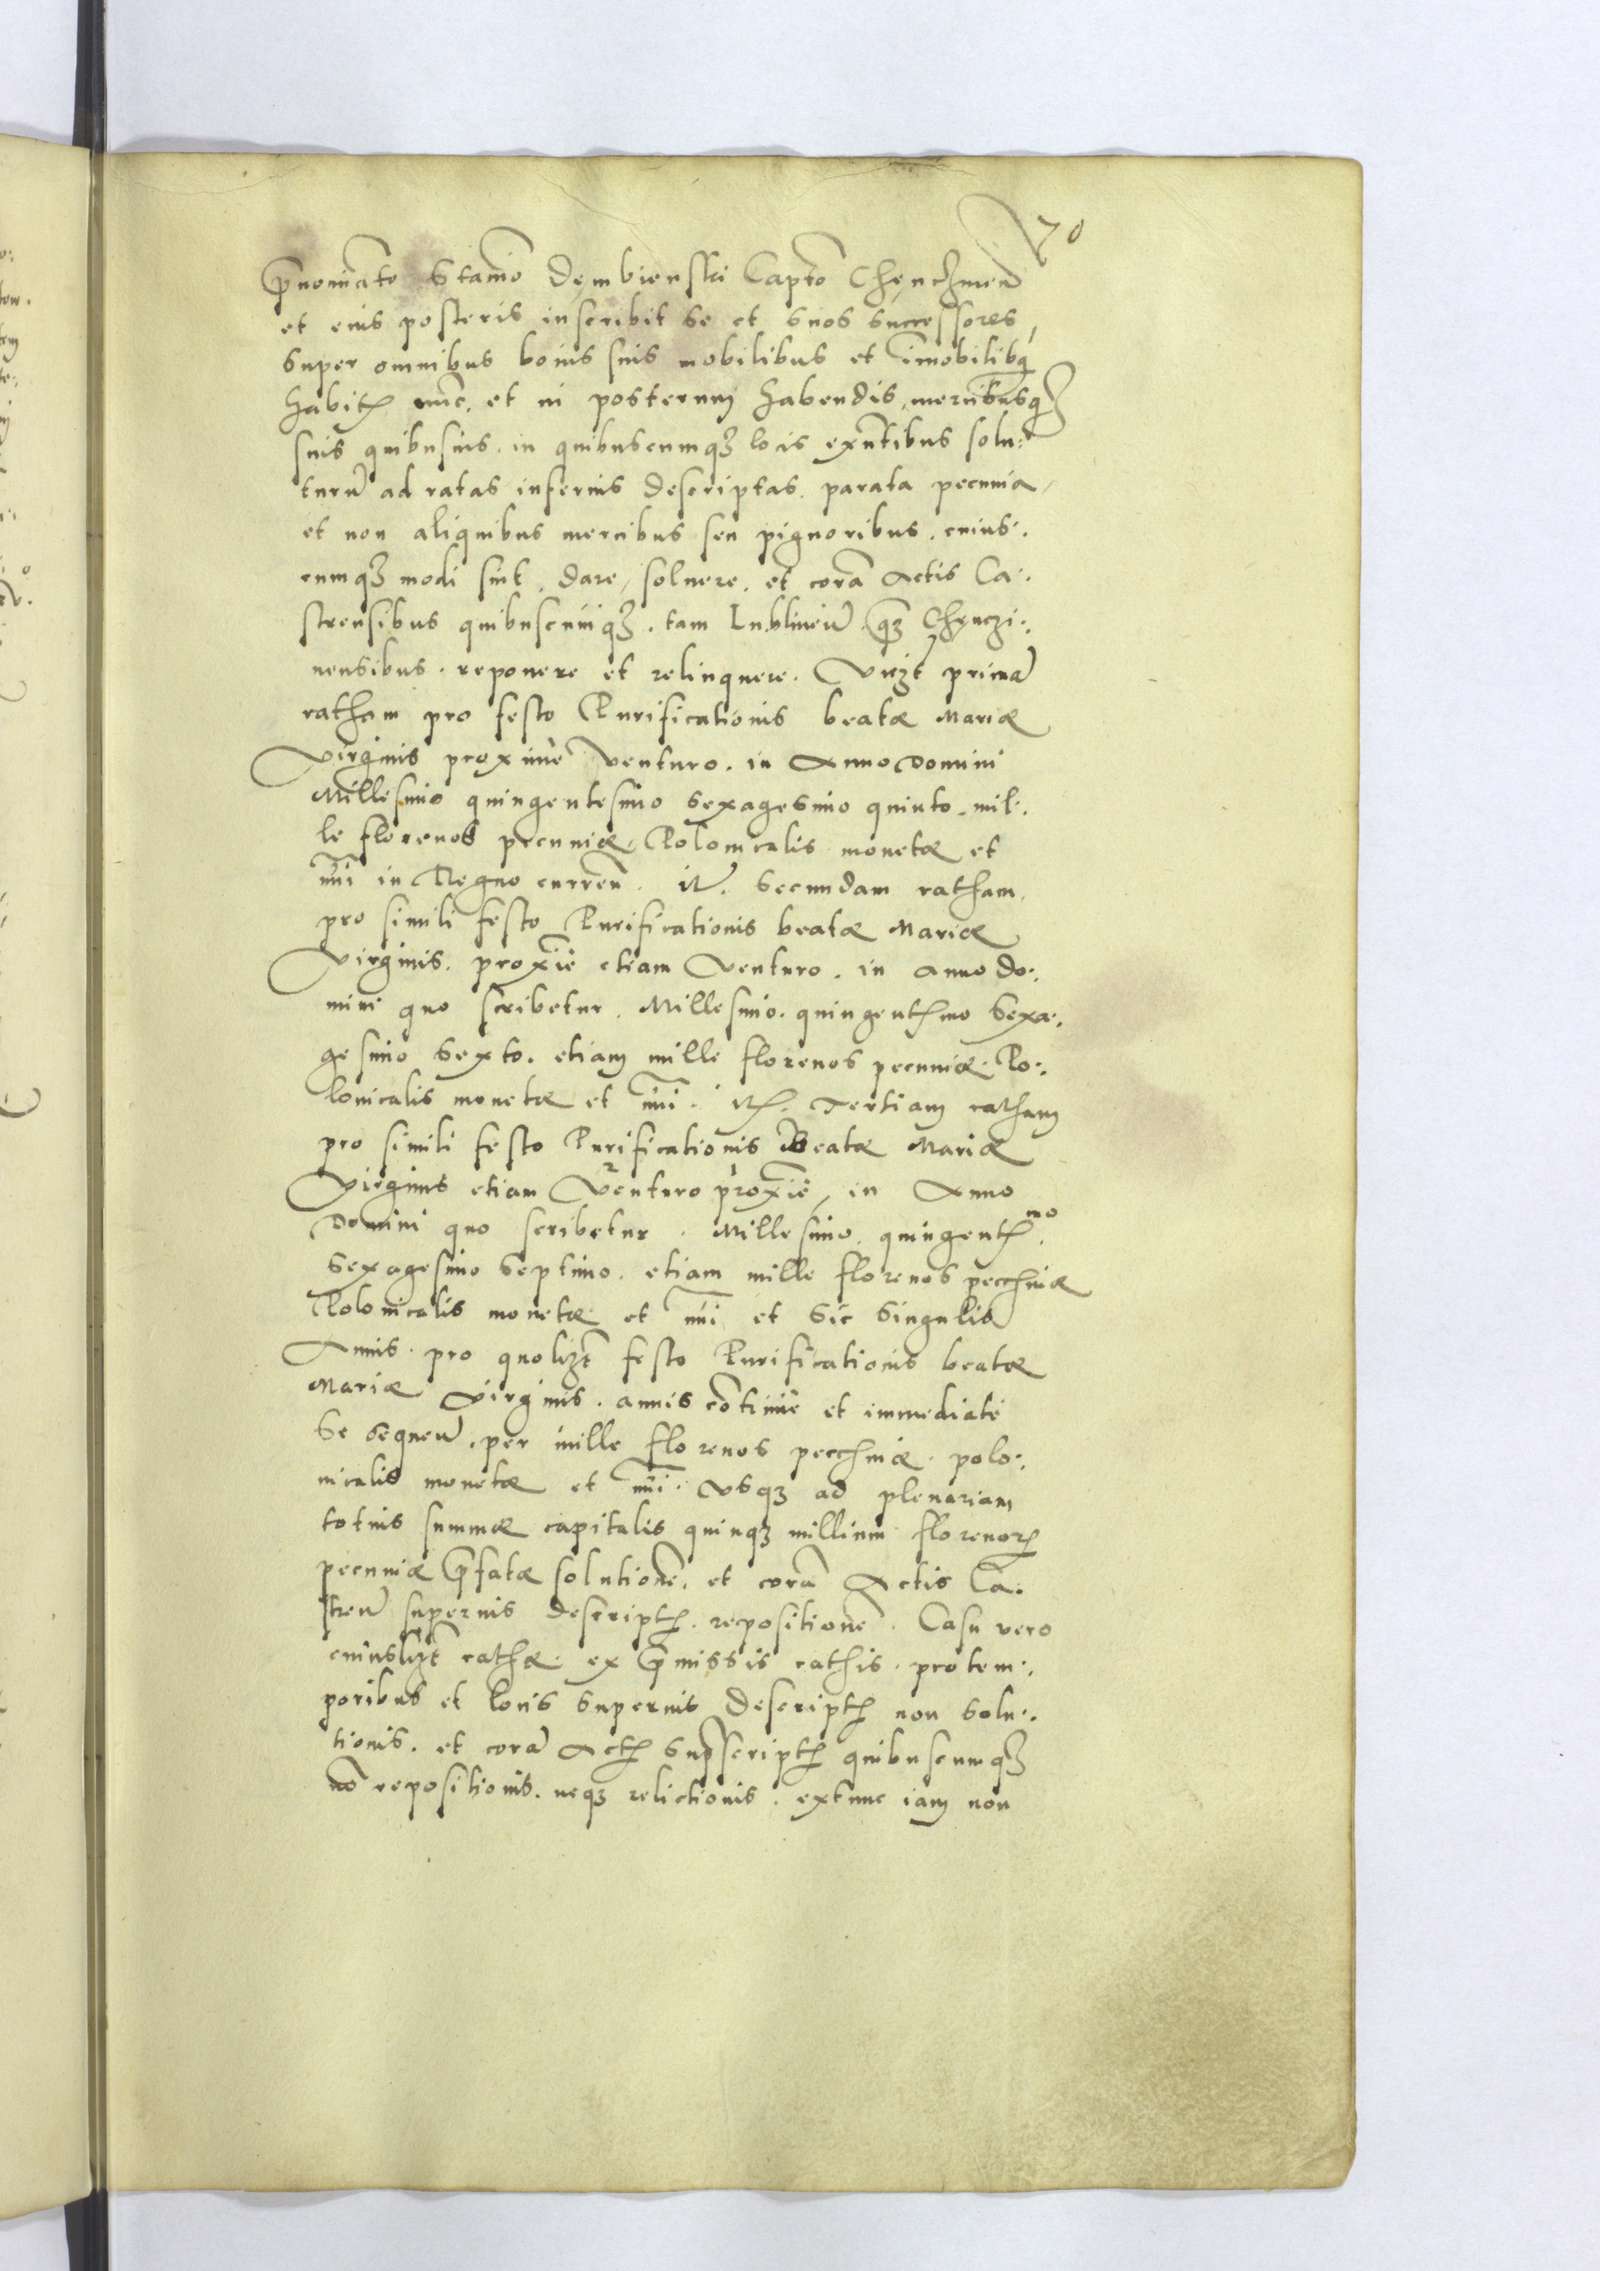 70
p̄nominato Stanio Dęmbienski Capto Chęnczinen
et eius posteris inscribit se et suos successores,
super omnibus bonis suis mobilibus et imobilibq
habitis nūc. et in posterum habendis, mercibusqȝ
suis quibusuis. in quibuscumqȝ locis exñtibus solu:
turū ad ratas inferius descriptas. parata pecunia,
et non aliquibus mercibus seu pignoribus. cuius:
cumqȝ modi sint, dare, soluere, et corā Actis Ca:
strensibus quibuscūiqȝ. tam Lublineñ. qȝ Chęnczi:
nensibus. reponere et relinquere. Vidȝt primā
ratham pro festo Purificationis beatæ Mariæ
Virginis proximè venturo. in Anno Domini
Millesimo quingentesimo sexagesimo quinto. mil:
le florenos pecuniæ, Polonicalis monetæ et
nūi in Regno curreñ. itē. secundam ratham,
pro simili festo Purificationis beatæ Mariæ
Virginis. proxīe etiam Venturo. in anno do:
mini quo scribetur. Millesimo. quingentesmo sexa:
gesimo sexto. etiam mille florenos pecuniæ. Po:
lonicalis monetæ et nūi. itē. Tertiam ratham
pro simili festo Purificationis Beatæ Mariæ
Virginis etiam Venturo proxīe, in Anno
Domini quo scribetur. Millesimo. quingentes mo
sexagesimo septimo. etiam mille florenos pecchniæ
Polonicalis monetæ et nūi et sic singulis
Annis. pro quolibȝt festo Purificationis beatæ
Mariæ Virginis. annis cōtinuè et immediatè
se sequeñ. per mille florenos pecchniæ. polo:
nicalis monetæ et nūi. Vsqȝ ad plenariam
totius summæ capitalis quinqȝ millium florenorum
pecuniæ p̄fatæ solutionē. et corā Actis Ca:
streñ superius descriptis. repositionē. Casu vero
cuiuslibȝt rathæ. ex p̄missis rathis. pro tem:
poribus et locis superius descriptis non solu:
tionis. et corā Actis supscriptis quibuscumqȝ
nō repositionis. neqȝ relictionis. extunc iam non